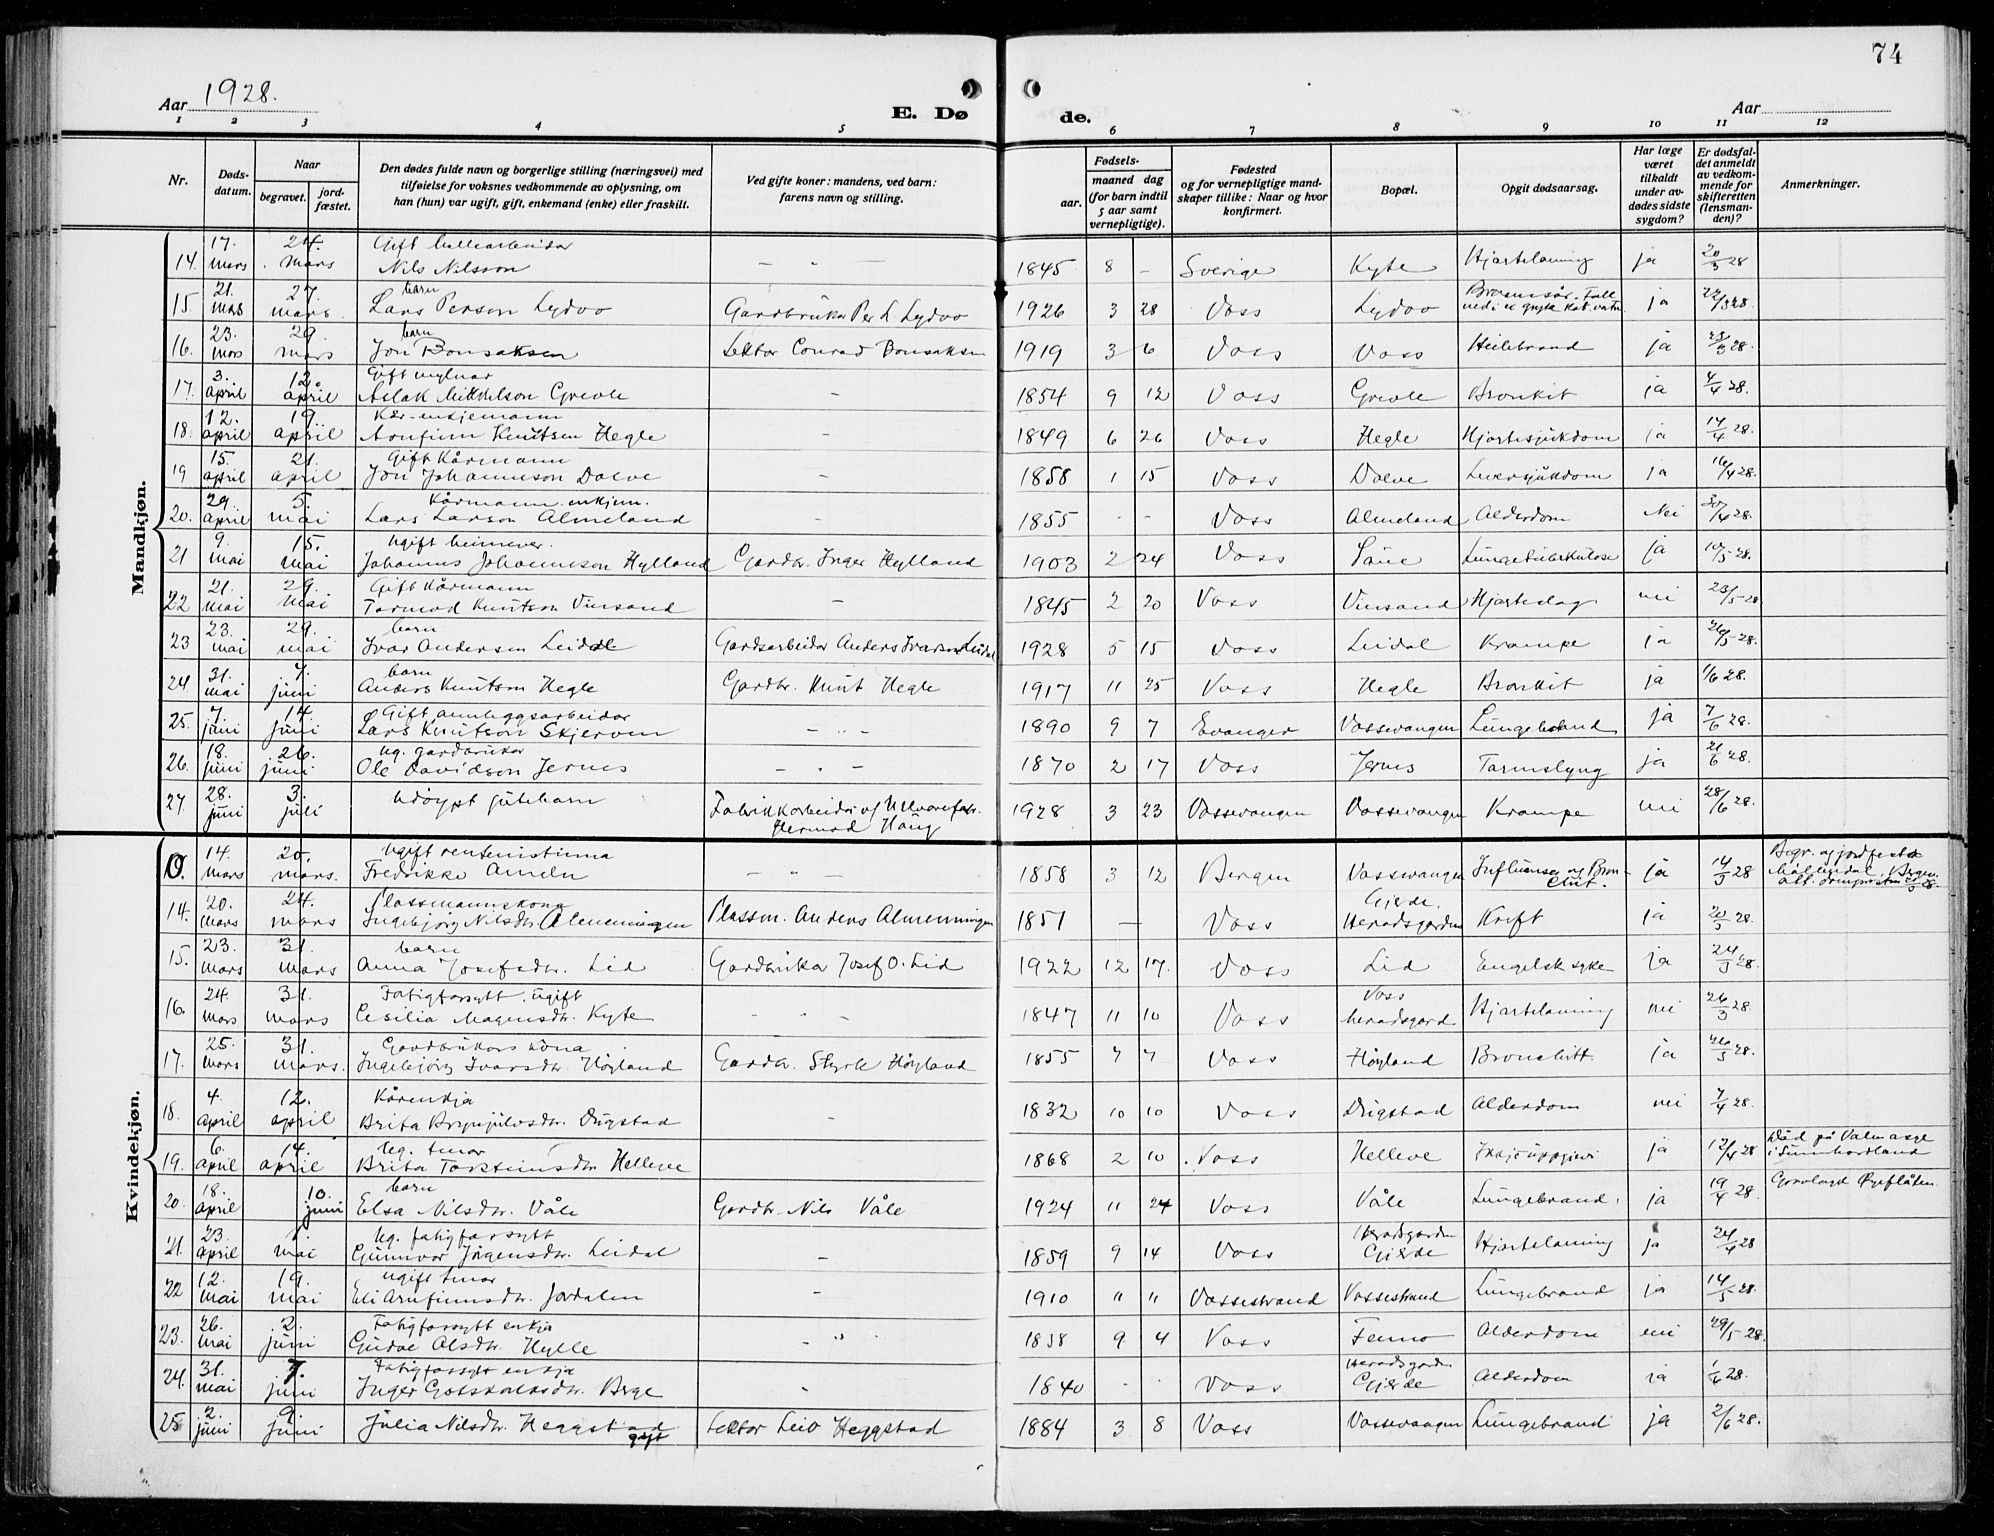 74
Aar 1928.
E. Dø
de.
Aar
1 2 3 4 5 6 7 8 9 10 11 12
Nr.
Døds-
datum.
Naar
begravet.
jord-
fæstet.
Den dødes fulde navn og borgerlige stilling (næringsvei) med
tilføielse for voksnes vedkommende av oplysning, om
han (hun) var ugift, gift, enkemand (enke) eller fraskilt.
Ved gifte koner: mandens, ved barn:
farens navn og stilling.
Fødsels-
aar.
maaned dag
(for barn indtil
5 aar samt
vernepligtige).
Fødested
og for vernepligtige mand-
skaper tillike: Naar og hvor
konfirmert.
Bopæl.
Opgit dødsaarsag.
Har læge
været
tilkaldt
under av-
dødes sidste
sygdom?
Er dødsfal-
det anmeldt
av vedkom-
mende for
skifteretten
(lensman-
den)?
Anmerkninger.
Mandkjøn.
17. 24. Gift
14. mars mars Nils Nilsson — " — 1845 8 – Sverige Kyte Hjartelaming ja 20/3 28
21. 27. barn
15. mars mars. Lars Person Lydvo Gardbrukar Per L. Lydvo 1926 3 28 Voss Lydvo ja 22/3 28
23. 29. barn
16. mars mars Jon Bonsaksen Lektor Conrad Bonsaksen 1919 3 6 Voss Voss Heilebrand ja 23/3 28.
3. 12. Gift mylnar
17. april april Aslak Mikkelson Greole – 1854 9 12 Voss Greole Bronkit ja 4/4 28.
12. 19. Kår-enkjemann
18. april april Arnfinn Knutsen Hegle – 1849 6 26 Voss Hegle Hjartesjukdom ja 14/4 28.
15. 21. Gift Kårmann
19 april april Jon Johannson Dolve – 1858 1 15 Voss Dolve Leversjukdom ja 16/4 28.
29. 5. Kårmann, enkjem.
20. april mai Lars Larson Almeland – 1855 - - Voss Almeland Alderdom Nei 30/4 28.
9. 15. Ugift heimever.
21 mai mai Johannes Johannson Hylland Gardbr. Inger Hylland 1903 2 24 Voss Saue Lungetuberkulose ja 10/5-28.
21. 29. Gift Kårmann
22 mai mai Tormod Knutson Vinsand – 1845 2 20 Voss Vinsand Hjarteslag nei 23/5-28
23. 29. barn
23 mai mai Ivar Andersen Leidal Gardsarbeidar Anders Ivarson Leidal 1928 5 15 Voss Leidal Krampe ja 26/5-28.
31. 7. barn
24 mai juni Anders Knutson Hegle Gardbr. Knut Hegle 1917 11 25 Voss Hegle Bronkit ja 1/6 28.
7. 14. Gift annleggsarbeidar
25. juni juni Lars Knutson Skjerven – " – 1890 9 7 Evanger Vossevangen Lungebrand ja 7/6 28.
18. 26. Ug. gardbrukar
26. juni juni Ole Davidson Jernes – " – 1870 2 17 Voss Jernes Tarmslyng ja 21/6 28.
28. 3. Udøypt gutebarn Fabrikkarbeidar
27. juni juli Hermod Haug 1928 3 23 Vossevangen Vossevangen Krampe nei 28/6 28.
Kvindekjøn.
14. 20. Ugift rentenistinna
0. mars mars. Fredrikke Ameln – " – 1858 3 12 Bergen Vossevangen Influensa og Bron- ja 14/3 28 Begr. og jordfesta
chit. Møllendal, Bergen.
20. 24. Plassmannskona Gjerde.
14. mars mars Ingebjørg Nilsdtr. Almenningen Plassm. Anders Almenningen 1851 – Voss Heradsgarden Kreft ja 20/3 28.
23. 31. barn
15. mars mars Anna Josefsdtr. Lid Gardbrukar Josef O. Lid 1922 12 17. Voss Lid Engelsk syke ja 24/3 28.
24. 31. Fatigforsytt, ugift Voss
16. mars mars Cesilia Magnusdtr. Kyte - " - 1847 11 10 Voss heradsgard Hjartelaming nei 26/3 28.
25. 31. Gardbrukars kona
17. mars mars. Ingebjørg Ivarsdtr. Høyland Gardbr. Styrk Høyland 1855 7 7 Voss Høyland Bronchitt. ja 26/3 28.
4. 12. Kårenkja
18. april april Brita Brynjulvsdtr. Dugstad – 1832 10 10 Voss Dugstad Alderdom nei 7/4 28.
6. 14. Ug. tenar
19. april april Brita Torsteinsdtr. Helleve 1868 2 10 Voss Helleve Ikkje uppgjevi ja 12/4 28 Død på Valm asyl
i Sunnhordland
18. 10. barn
20. april juni Elsa Nilsdtr. Våle Gardbr. Nils Våle 1924 11 24 Voss Våle Lungebrand. ja 19/4 28. Gravlagd Øyeflåten.
23. 1. Ug. fatigforsytt Heradsgarden
21. april mai Gunnvor Jørgensdtr. Leidal – 1859 9 14 Voss Gjerde Hjartelaming ja 24/4 28
12. 19. Ugift tenar
22 mai mai Eli Arnfinnsdtr. Jordalen – 1910 " " Vossestrand Vossestrand Lungebrand ja 14/5 28.
26. 2. Fatigforsytt enkja
23. mai juni Gudve Olsdtr. Hylle " 1838 9 4 Voss Femo Alderdom nei 29/5 28.
31. 7. Fatigforsytt enkja Heradsgarden
24. mai juni Inger Gotskalksdtr. Berge " 1840 - - Voss Gjerde Alderdom ja 1/6 28.
2. 9.
25 juni juni Julia Nilsdtr. Heggstad Lektor Leiv Heggstad 1884 3 8 Voss Vossevangen Lungebrand ja 2/6 28.
gift